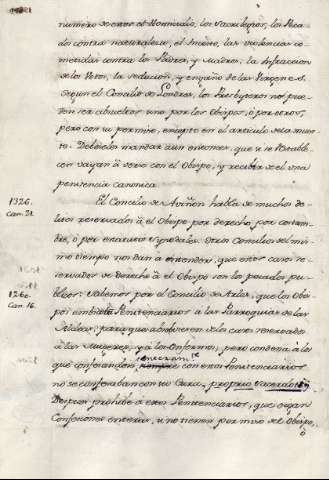 numero de estos el Homicidio, los Sacrilegos, los Peca
dos contra naturaleza, el Incesto, las violencias co
metidas contra los Padres, y Madres, la infraccion
de los Votos, la seducion, y engaño de las Virgenes.
Segun el Concilio de Londres, los Presbyteros no pue
den ser absueltos sino por los Obispos, ó por otros,
pero con su permiso, excepto en el articulo de la muer
te. Deben los mandar aun enfermos, que si se restable
cen vayan á verse con el Obispo, y reciban de el una
penitencia canonica.
1326.
Can. 21.
El Concilio de Aviñon habla de muchos de
litos reservados á el Obispo por derecho, por costum
bre, ó por estatutos Synodales. Otros Concilios del mis
mo tiempo nos dan á entender, que estos casos re
servados de derecho á el Obispo son los pecados pu
blicos. Sabemos por el Concilio de Arles, que los Obis
1260.
Can. 16.
pos embiaban Penitenciarios a las Parroquias de las
Aldeas, para que absolviesen de los casos reservados
á las Mugeres, y á los Enfermos, pero condena á los
que confesandose con estos Penitenciarios
no se confesaban con su Cura, proprio Sacerdoti.
Despues prohibe á estos Penitenciarios, que oigan
Confesiones enteras, si no tienen permiso de el Obispo,
ó